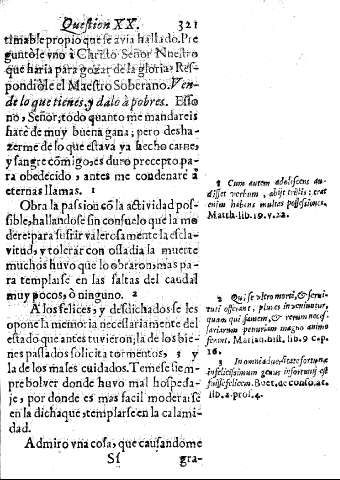 Question XX. 321
timable propio que se avia hallado. Pre
guntòle vno à Christo Señor Nuestro
que haria para gozar de la gloria: Res-
pondiòle el Maestro Soberano. Ven-
de lo que tienes, y dalo à pobres. Esso
no, Señor; todo quanto me mandareis
harè de muy buena gana; pero desha-
zerme de lo que estava ya hecho carne,
y sangre cōmigo, es duro precepto pa-
ra obedecido, antes me condenare à
eternas llamas. 1
Obra la passion cō la actividad pos-
sible, hallandose sin consuelo que la mo
dere: para sufrir valerosamente la escla-
vitud, y tolerar con ossadia la muerte
muchos huvo que lo obraron; mas pa-
ra templarse en las faltas del caudal
muy pocos, ò ninguno. 2
A los felices, y desdichados se les
opone la memoria necessariamente del
estado que antes tuvieron; la de los bie-
nes passados solicita tormentos, 3 y
la de los males cuidados. Temese siem-
pre bolver donde huvo mal hospeda-
je, por donde es mas facil moderarse
en la dicha que templarse en la calami-
dad.
Admiro vna cosa, que causandome
Sſ gra-
1 Cum autem adolescens au-
disset verbum, abijt tristis: erat
enim habens multas possessiones.
Matth. lib. 19. v. 22.
2 Qui se vltro morti, & servi-
tuti offerant, plures invenientur,
quam qui famem, & rerum neces-
sariarum penuriam magno animo
ferant. Marian. hist. lib. 9 cap.
16.
3 In omni adversitate fortunæ
infelicissimum genus infortunij est
fuisse felicem. Boet. de conso. ac.
lib. 2. pros. 4.